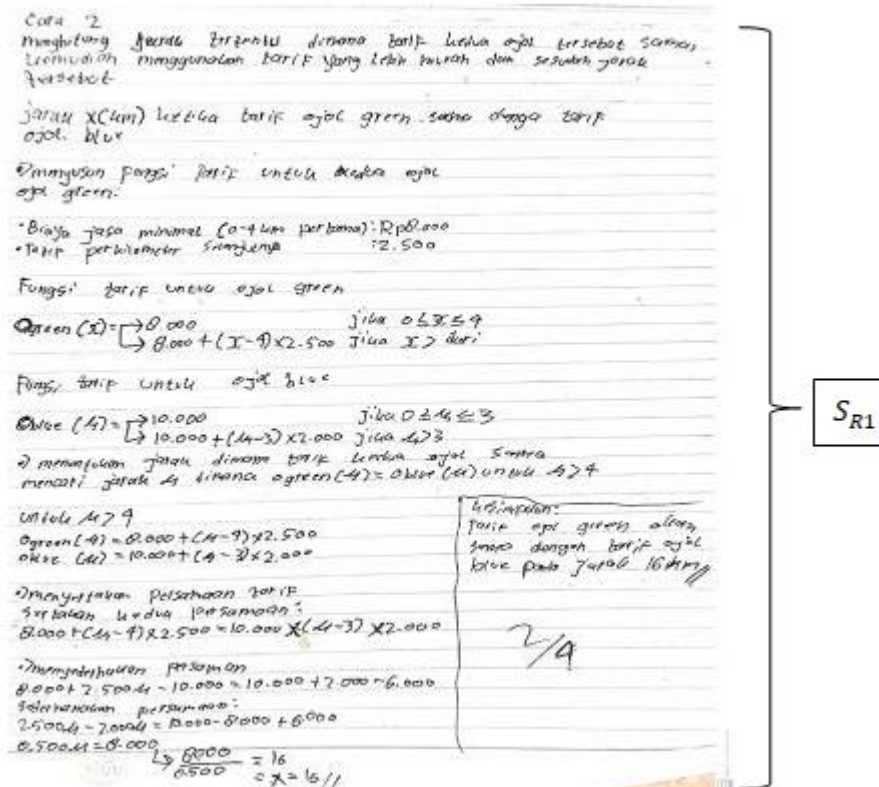 Cara 2
menghitung jarak tertentu dimana tarif kedua ojol tersebut sama,
kemudian menggunakan tarif yang lebih murah dan sesudah jarak
tersebut
jarak x(km) ketika tarif ojol green sama denga tarif
ojol blue
menyusun fungsi tarif untuk kedua ojol
ojol green:
• Biaya jasa minimal (0-4 km pertama): Rp8.000
• Tarif perkilometer :2.500
Fungsi tarif untuk ojol green
Ogreen (x) = → 8.000 jika 0 ≤ x ≤ 4
→ 8.000 + (x-4) x 2.500 jika x > dari
Fungsi tarif untuk ojol blue
Oblue (x) = → 10.000 jika 0 ≤ x ≤ 3
→ 10.000 + (x-3) x 2.000 jika x > 3
menentukan jarak dimana tarif kedua ojol sama
mencari jarak x dimana ogreen (x) = oblue (x) untuk x > 4
untuk x > 4
Ogreen (x) = 8.000 + (x-4) x 2.500
oblue (x) = 10.000 + (x-3) x 2.000
persamaan tarif
kedua persamaan:
8.000 + (x-4) x 2.500 = 10.000 x (x-3) x 2.000
8.000 + 2.500x - 10.000 = 10.000 + 2.000 - 6.000
persamaan:
2.500x - 2.000x = 10.000 - 8.000 + 6.000
0.500x = 8.000
↳ 8000/0.500 = 16
= x = 16 //
kesimpulan:
tarif ojol green akan
sama dengan tarif ojol
blue pada jarak 16 km //
2/4
S_{R1}